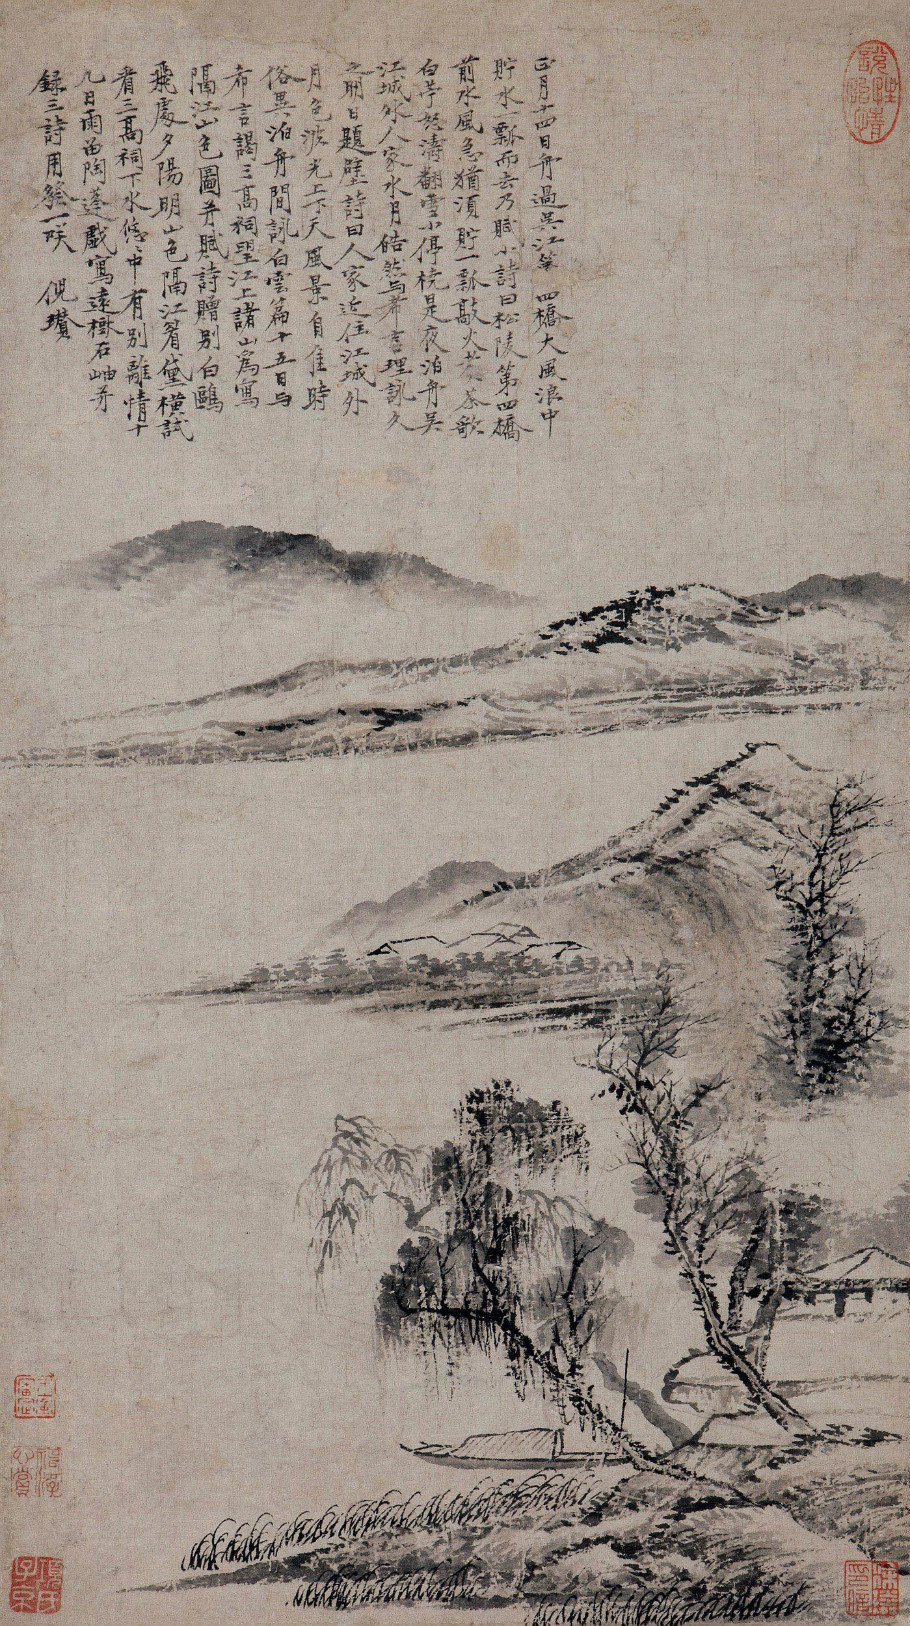 正月十四日舟過吳江第四橋大風浪中
貯水一瓢而去乃賦小詩曰松陵第四橋
前水風急猶須貯一瓢敲火煮茶歌
白苧怒濤翻雪小停橈是夜泊舟吳
江城外人家水月皓然與希言理詠久
之明日題壁詩曰人家近住江城外
月色波光上下天風景自佳時
俗異泊舟閒詠白雲篇十五日與
希言謁三高祠望江上諸山為寫
隔江山色圖并賦詩贈別白鷗
飛處夕陽明山色隔江眉黛橫試
看三高祠下水悠中有別離情十
九日雨留陶蓬戲寫遠樹石岫并
錄三詩用發一咲 倪瓚
項氏子京